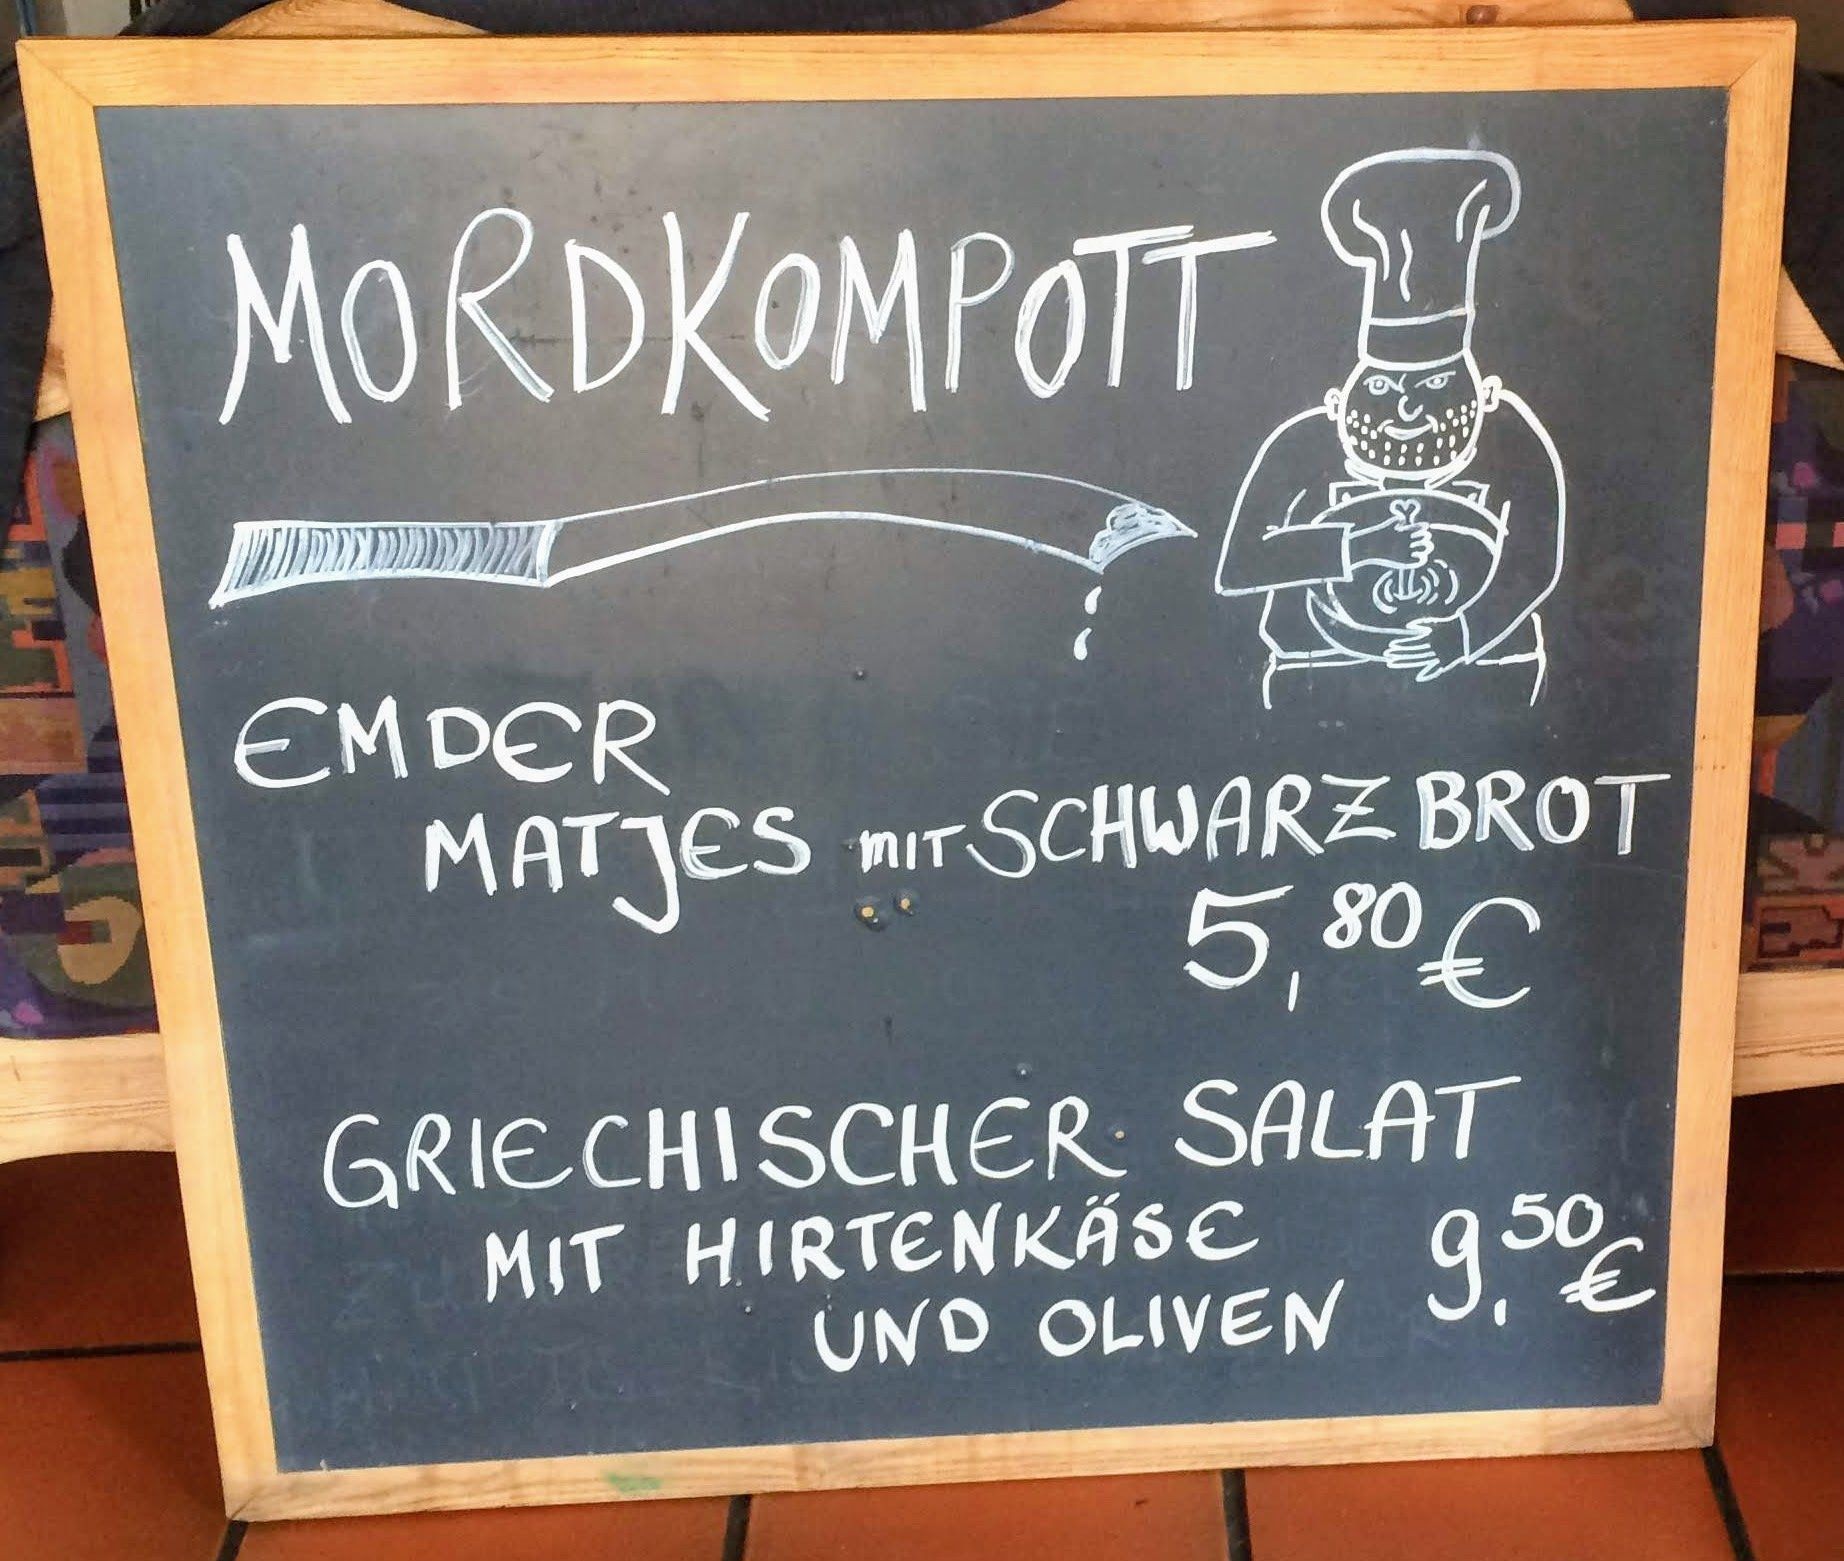 MORDKOMPOTT
EMDER
MATJES MIT SCHWARZBROT
5,80 €
GRIECHISCHER SALAT
MIT HIRTENKÄSE 9,50 €
UND OLIVEN